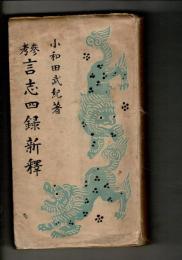 參考 言志四録新釋
小和田武紀著